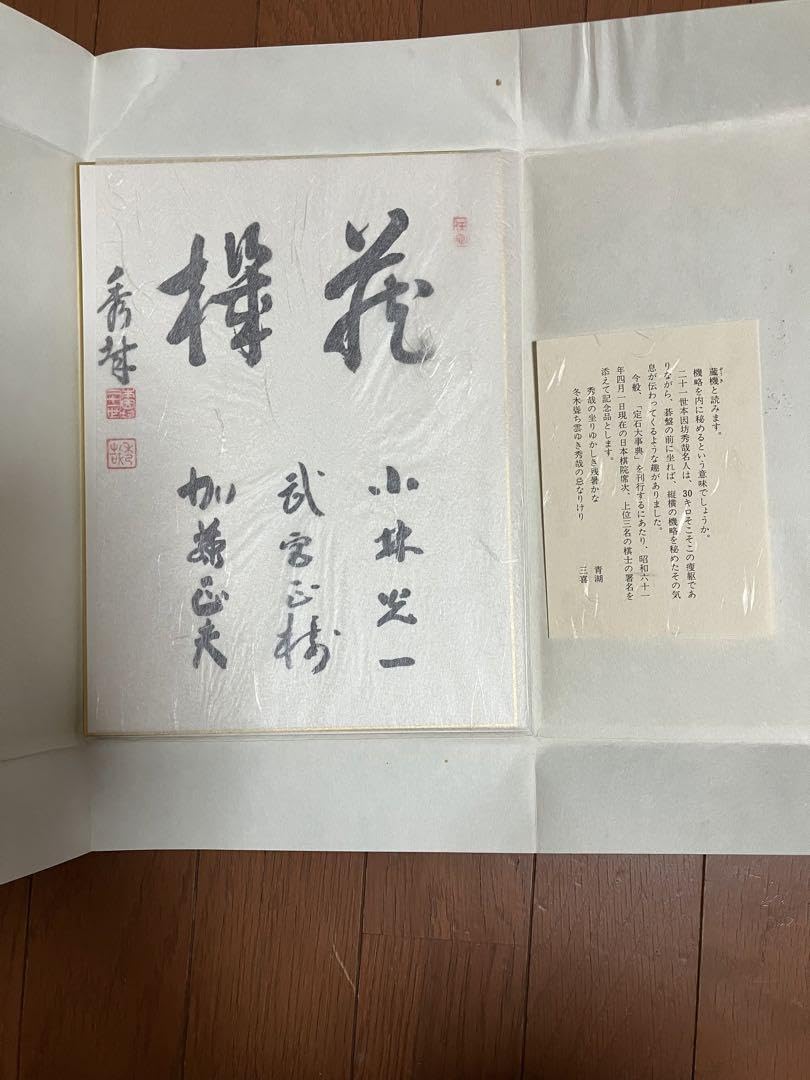 蔵機
秀哉
小林光一
武宮正樹
加藤正夫
蔵機と読みます。
機略を内に秘めるという意味でしょうか。
二十一世本因坊秀哉名人は、30キロそこそこの痩軀であ
りながら、碁盤の前に坐れば、縦横の機略を秘めたその気
息が伝わってくるような趣がありました。
今般、「定石大事典」を刊行するにあたり、昭和六十一
年四月一日現在の日本棋院席次、上位三名の棋士の署名を
添えて記念品とします。
秀哉の坐りゆかしき残暑かな 青湖
冬木聳ち雲ゆき秀哉の忌なりけり 三喜